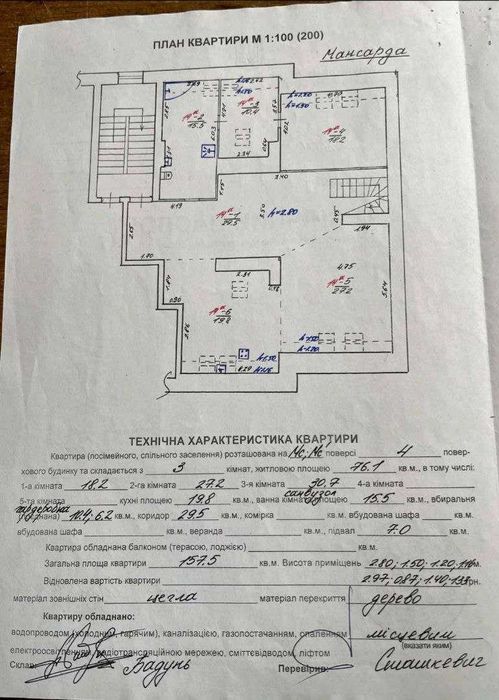 ПЛАН КВАРТИРИ М 1:100 (200)
Мансарда
2.65
2.03
h=2.80
4.13
3.40
3.50
h=2.80
2.65
1.94
1.70
2.91
4.75
3.64
0.90
2.86
14-1
29.5
14-2
15.5
14-3
10.4
14-4
18.2
14-5
27.2
14-6
19.8
ТЕХНІЧНА ХАРАКТЕРИСТИКА КВАРТИРИ
Квартира (посімейного, спільного заселення) розташована на Мс; Мс поверсі 4 повер-
хового будинку та складається з 3 кімнат, житловою площею 76.1 кв.м, в тому числі:
1-а кімната 18.2 2-га кімната 27.2 3-я кімната 30,7 4-а кімната
5-та кімната кухні площею 19.8 кв.м, ванна кімната санвузол 15.5 кв.м, вбиральня
гардеробна 10.4, 6.2 кв.м, коридор 29.5 кв.м, комірка кв.м, вбудована шафа кв.м.
вбудована шафа кв.м, веранда кв.м., підвал 7.0 кв.м.
Квартира обладнана балконом (терасою, лоджією) кв.м.
Загальна площа квартири 157.5 кв.м. Висота приміщень 2.80; 1.50; 1.20;
Відновлена вартість квартири 2.97; 0.87; 1.40; грн.
матеріал зовнішніх стін цегла матеріал перекриття дерево
Квартиру обладнано:
водопроводом (холодним, гарячим), каналізацією, газопостачанням, опаленням місцевим
(вказати яким)
електроосвітленням, радіотрансляційною мережею, сміттєвідводом, ліфтом
Склав: Бадунь Перевірив: Сташкевич